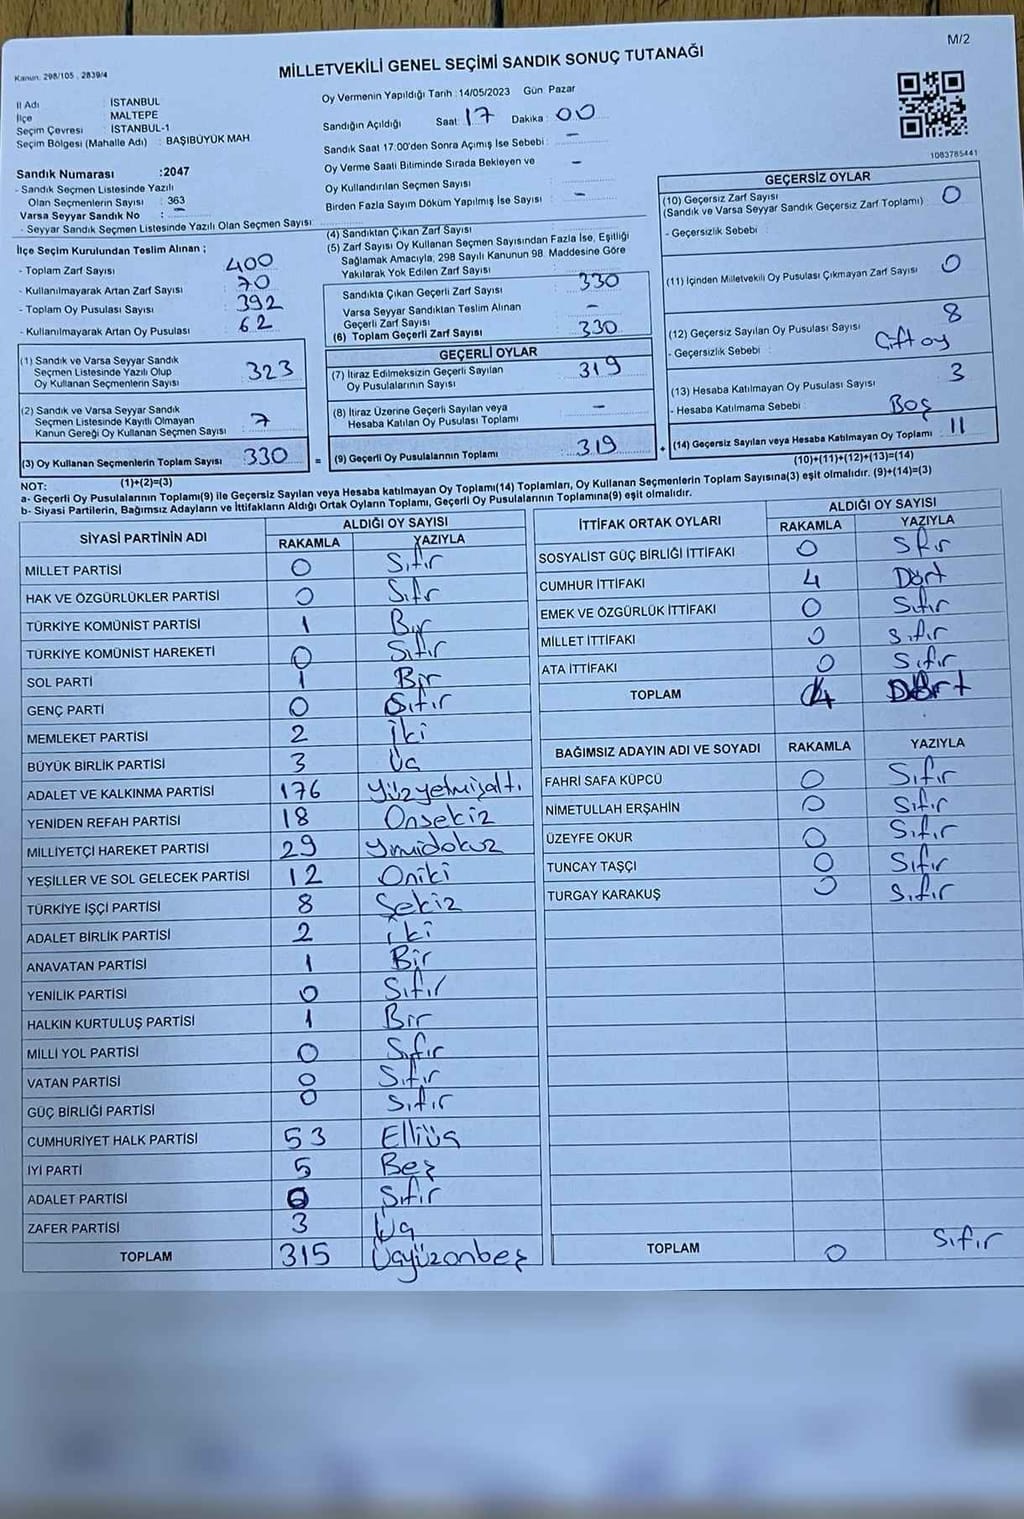 M/2
Kanun: 298/105 , 2839/4
MİLLETVEKİLİ GENEL SEÇİMİ SANDIK SONUÇ TUTANAĞI
İl Adı : İSTANBUL
İlçe : MALTEPE
Seçim Çevresi : İSTANBUL-1
Seçim Bölgesi (Mahalle Adı) : BAŞIBÜYÜK MAH
Sandık Numarası :2047
- Sandık Seçmen Listesinde Yazılı
Olan Seçmenlerin Sayısı : 363
Varsa Seyyar Sandık No : -
- Seyyar Sandık Seçmen Listesinde Yazılı Olan Seçmen Sayısı:
Oy Vermenin Yapıldığı Tarih :14/05/2023 Gün Pazar
Sandığın Açıldığı Saat: 17 Dakika : 00
Sandık Saat 17:00'den Sonra Açımış İse Sebebi : -
Oy Verme Saati Bitiminde Sırada Bekleyen ve
Oy Kullandırılan Seçmen Sayısı -
Birden Fazla Sayım Döküm Yapılmış İse Sayısı : -
1083785441
İlçe Seçim Kurulundan Teslim Alınan ;
- Toplam Zarf Sayısı 400
- Kullanılmayarak Artan Zarf Sayısı : 70
- Toplam Oy Pusulası Sayısı : 392
- Kullanılmayarak Artan Oy Pusulası : 62
(1) Sandık ve Varsa Seyyar Sandık
Seçmen Listesinde Yazılı Olup
Oy Kullanan Seçmenlerin Sayısı : 323
(2) Sandık ve Varsa Seyyar Sandık
Seçmen Listesinde Kayıtlı Olmayan
Kanun Gereği Oy Kullanan Seçmen Sayısı : 7
(3) Oy Kullanan Seçmenlerin Toplam Sayısı 330
(1)+(2)=(3)
(4) Sandıktan Çıkan Zarf Sayısı
(5) Zarf Sayısı Oy Kullanan Seçmen Sayısından Fazla İse, Eşitliği
Sağlamak Amacıyla, 298 Sayılı Kanunun 98. Maddesine Göre
Yakılarak Yok Edilen Zarf Sayısı
Sandıkta Çıkan Geçerli Zarf Sayısı : 330
Varsa Seyyar Sandıktan Teslim Alınan
Geçerli Zarf Sayısı : -
(6) Toplam Geçerli Zarf Sayısı : 330
GEÇERLİ OYLAR
(7) İtiraz Edilmeksizin Geçerli Sayılan
Oy Pusulalarının Sayısı : 319
(8) İtiraz Üzerine Geçerli Sayılan veya
Hesaba Katılan Oy Pusulası Toplamı : -
= (9) Geçerli Oy Pusulalarının Toplamı : 319 +
GEÇERSİZ OYLAR
(10) Geçersiz Zarf Sayısı
(Sandık ve Varsa Seyyar Sandık Geçersiz Zarf Toplamı) : 0
- Geçersizlik Sebebi :
(11) İçinden Milletvekili Oy Pusulası Çıkmayan Zarf Sayısı : 0
(12) Geçersiz Sayılan Oy Pusulası Sayısı : 8
- Geçersizlik Sebebi : Çift oy
(13) Hesaba Katılmayan Oy Pusulası Sayısı : 3
- Hesaba Katılmama Sebebi : Boş
(14) Geçersiz Sayılan veya Hesaba Katılmayan Oy Toplamı : 11
(10)+(11)+(12)+(13)=(14)
NOT:
a- Geçerli Oy Pusulalarının Toplamı(9) ile Geçersiz Sayılan veya Hesaba katılmayan Oy Toplamı(14) Toplamları, Oy Kullanan Seçmenlerin Toplam Sayısına(3) eşit olmalıdır. (9)+(14)=(3)
b- Siyasi Partilerin, Bağımsız Adayların ve İttifakların Aldığı Ortak Oyların Toplamı, Geçerli Oy Pusulasının Toplamına(9) eşit olmalıdır.
SİYASİ PARTİNİN ADI ALDIĞI OY SAYISI
RAKAMLA YAZIYLA
MİLLET PARTİSİ 0 Sıfır
HAK VE ÖZGÜRLÜKLER PARTİSİ 0 Sıfr
TÜRKİYE KOMÜNİST PARTİSİ 1 Bir
TÜRKİYE KOMÜNİST HAREKETİ 0 Sıfır
SOL PARTİ 1 Bir
GENÇ PARTİ 0 Sıfır
MEMLEKET PARTİSİ 2 İki
BÜYÜK BİRLİK PARTİSİ 3 Üç
ADALET VE KALKINMA PARTİSİ 176 Yüzyetmişaltı
YENİDEN REFAH PARTİSİ 18 Onsekiz
MİLLİYETÇİ HAREKET PARTİSİ 29 Yirmidokuz
YEŞİLLER VE SOL GELECEK PARTİSİ 12 Oniki
TÜRKİYE İŞÇİ PARTİSİ 8 Sekiz
ADALET BİRLİK PARTİSİ 2 iki
ANAVATAN PARTİSİ 1 Bir
YENİLİK PARTİSİ 0 Sıfır
HALKIN KURTULUŞ PARTİSİ 1 Bir
MİLLİ YOL PARTİSİ 0 Sıfır
VATAN PARTİSİ 0 Sıfır
GÜÇ BİRLİĞİ PARTİSİ 0 Sıfır
CUMHURİYET HALK PARTİSİ 53 Elliüç
İYİ PARTİ 5 Beş
ADALET PARTİSİ 0 Sıfır
ZAFER PARTİSİ 3 Üç
TOPLAM 315 Üçyüzonbeş
İTTİFAK ORTAK OYLARI ALDIĞI OY SAYISI
RAKAMLA YAZIYLA
SOSYALİST GÜÇ BİRLİĞİ İTTİFAKI 0 Sıfır
CUMHUR İTTİFAKI 4 Dört
EMEK VE ÖZGÜRLÜK İTTİFAKI 0 Sıfır
MİLLET İTTİFAKI 0 Sıfır
ATA İTTİFAKI 0 Sıfır
TOPLAM 4 Dört
BAĞIMSIZ ADAYIN ADI VE SOYADI RAKAMLA YAZIYLA
FAHRİ SAFA KÜPCÜ 0 Sıfır
NİMETULLAH ERŞAHİN 0 Sıfır
ÜZEYFE OKUR 0 Sıfır
TUNCAY TAŞÇI 0 Sıfır
TURGAY KARAKUŞ 0 Sıfır
TOPLAM 0 Sıfır